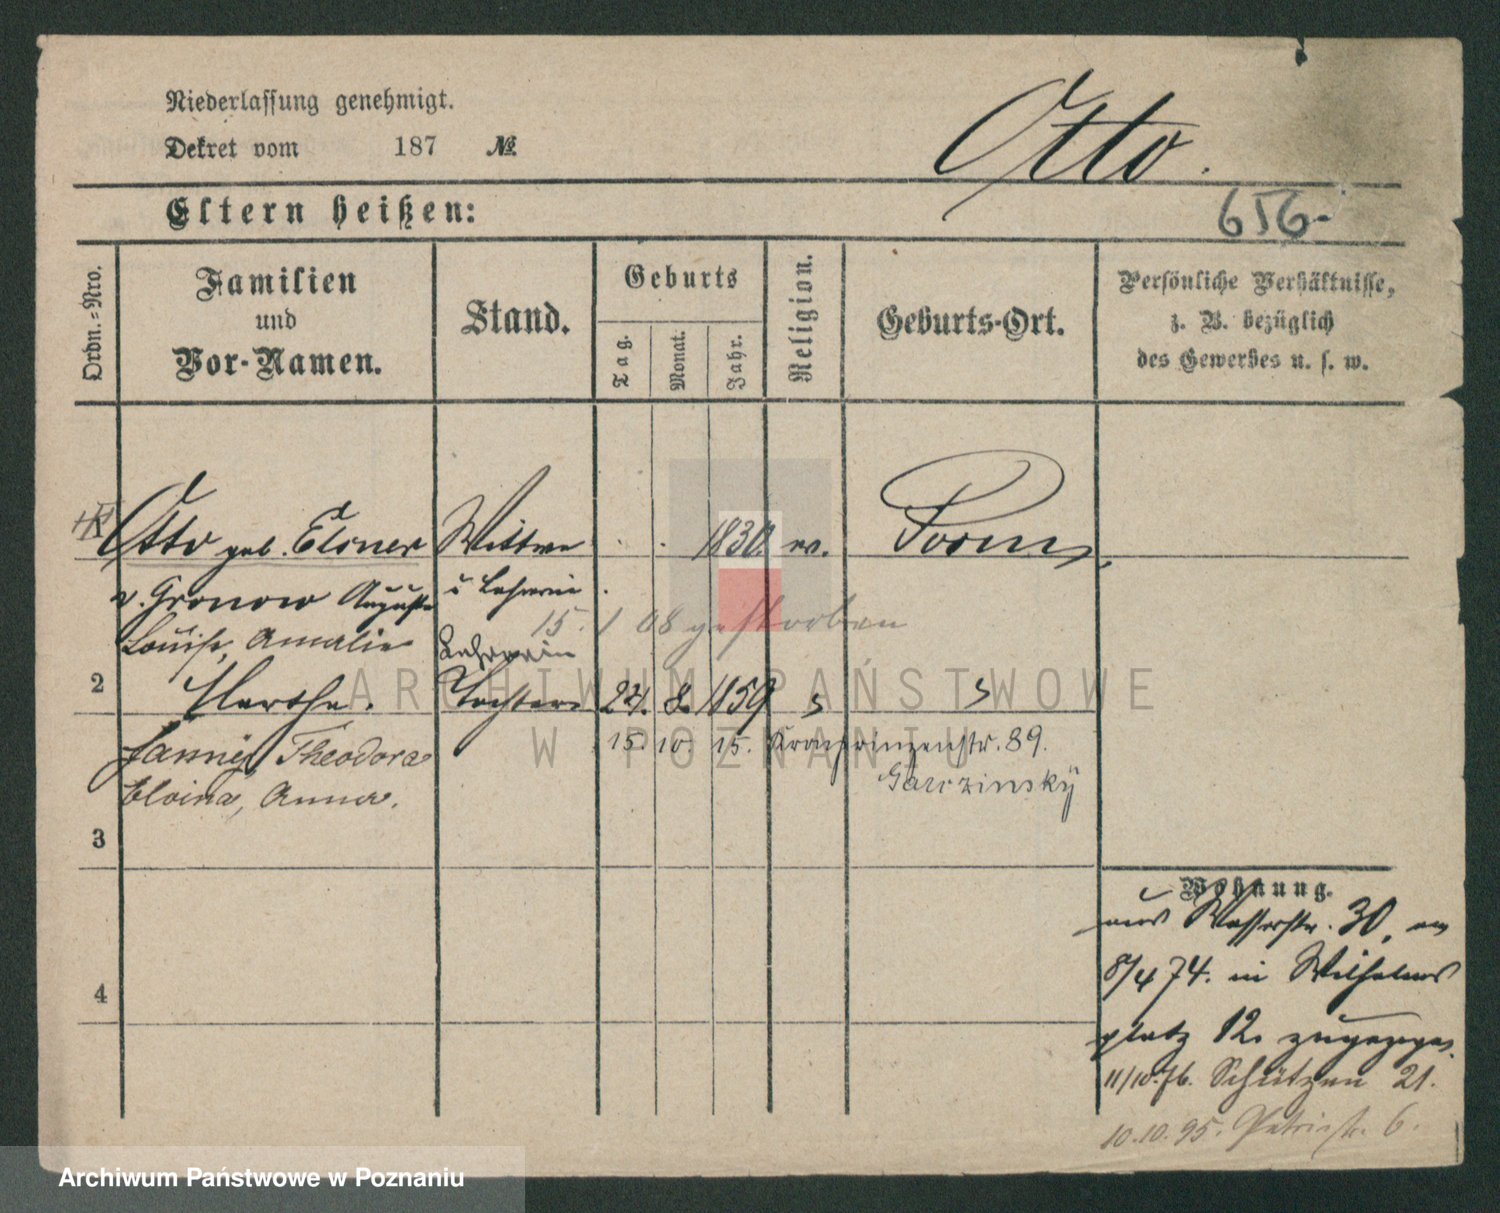 Niederlassung genehmigt.
Dekret vom 187 №
Otto.
Eltern heißen:
656.
Ordn.-Nro.
Familien
und
Vor-Namen.
Stand.
Geburts
Tag.
Monat.
Jahr.
Religion.
Geburts-Ort.
Persönliche Verhältnisse,
z. B. bezüglich
des Gewerbes u. s. w.
Otto geb. Elsner Wittwe 1830 ev. Posen
v. Gronow Auguste u Lehrerin
Louise, Amalie 15. 1 08 gestorben
Lehrerin
2 Martha. Tochter 8. 1859
Fanny, Theodora 15. 10. 15. Kronprinzenstr. 89.
Anna. Garczinsky
3
4
Wohnung.
aus Wasserstr. 30, am
8/4 74. in Wilhelms
platz 12. zugezogen.
11/10.76. Schützen 21.
10.10.95. Petristr. 6.
ARCHIWUM PAŃSTWOWE
W POZNANIU
Archiwum Państwowe w Poznaniu